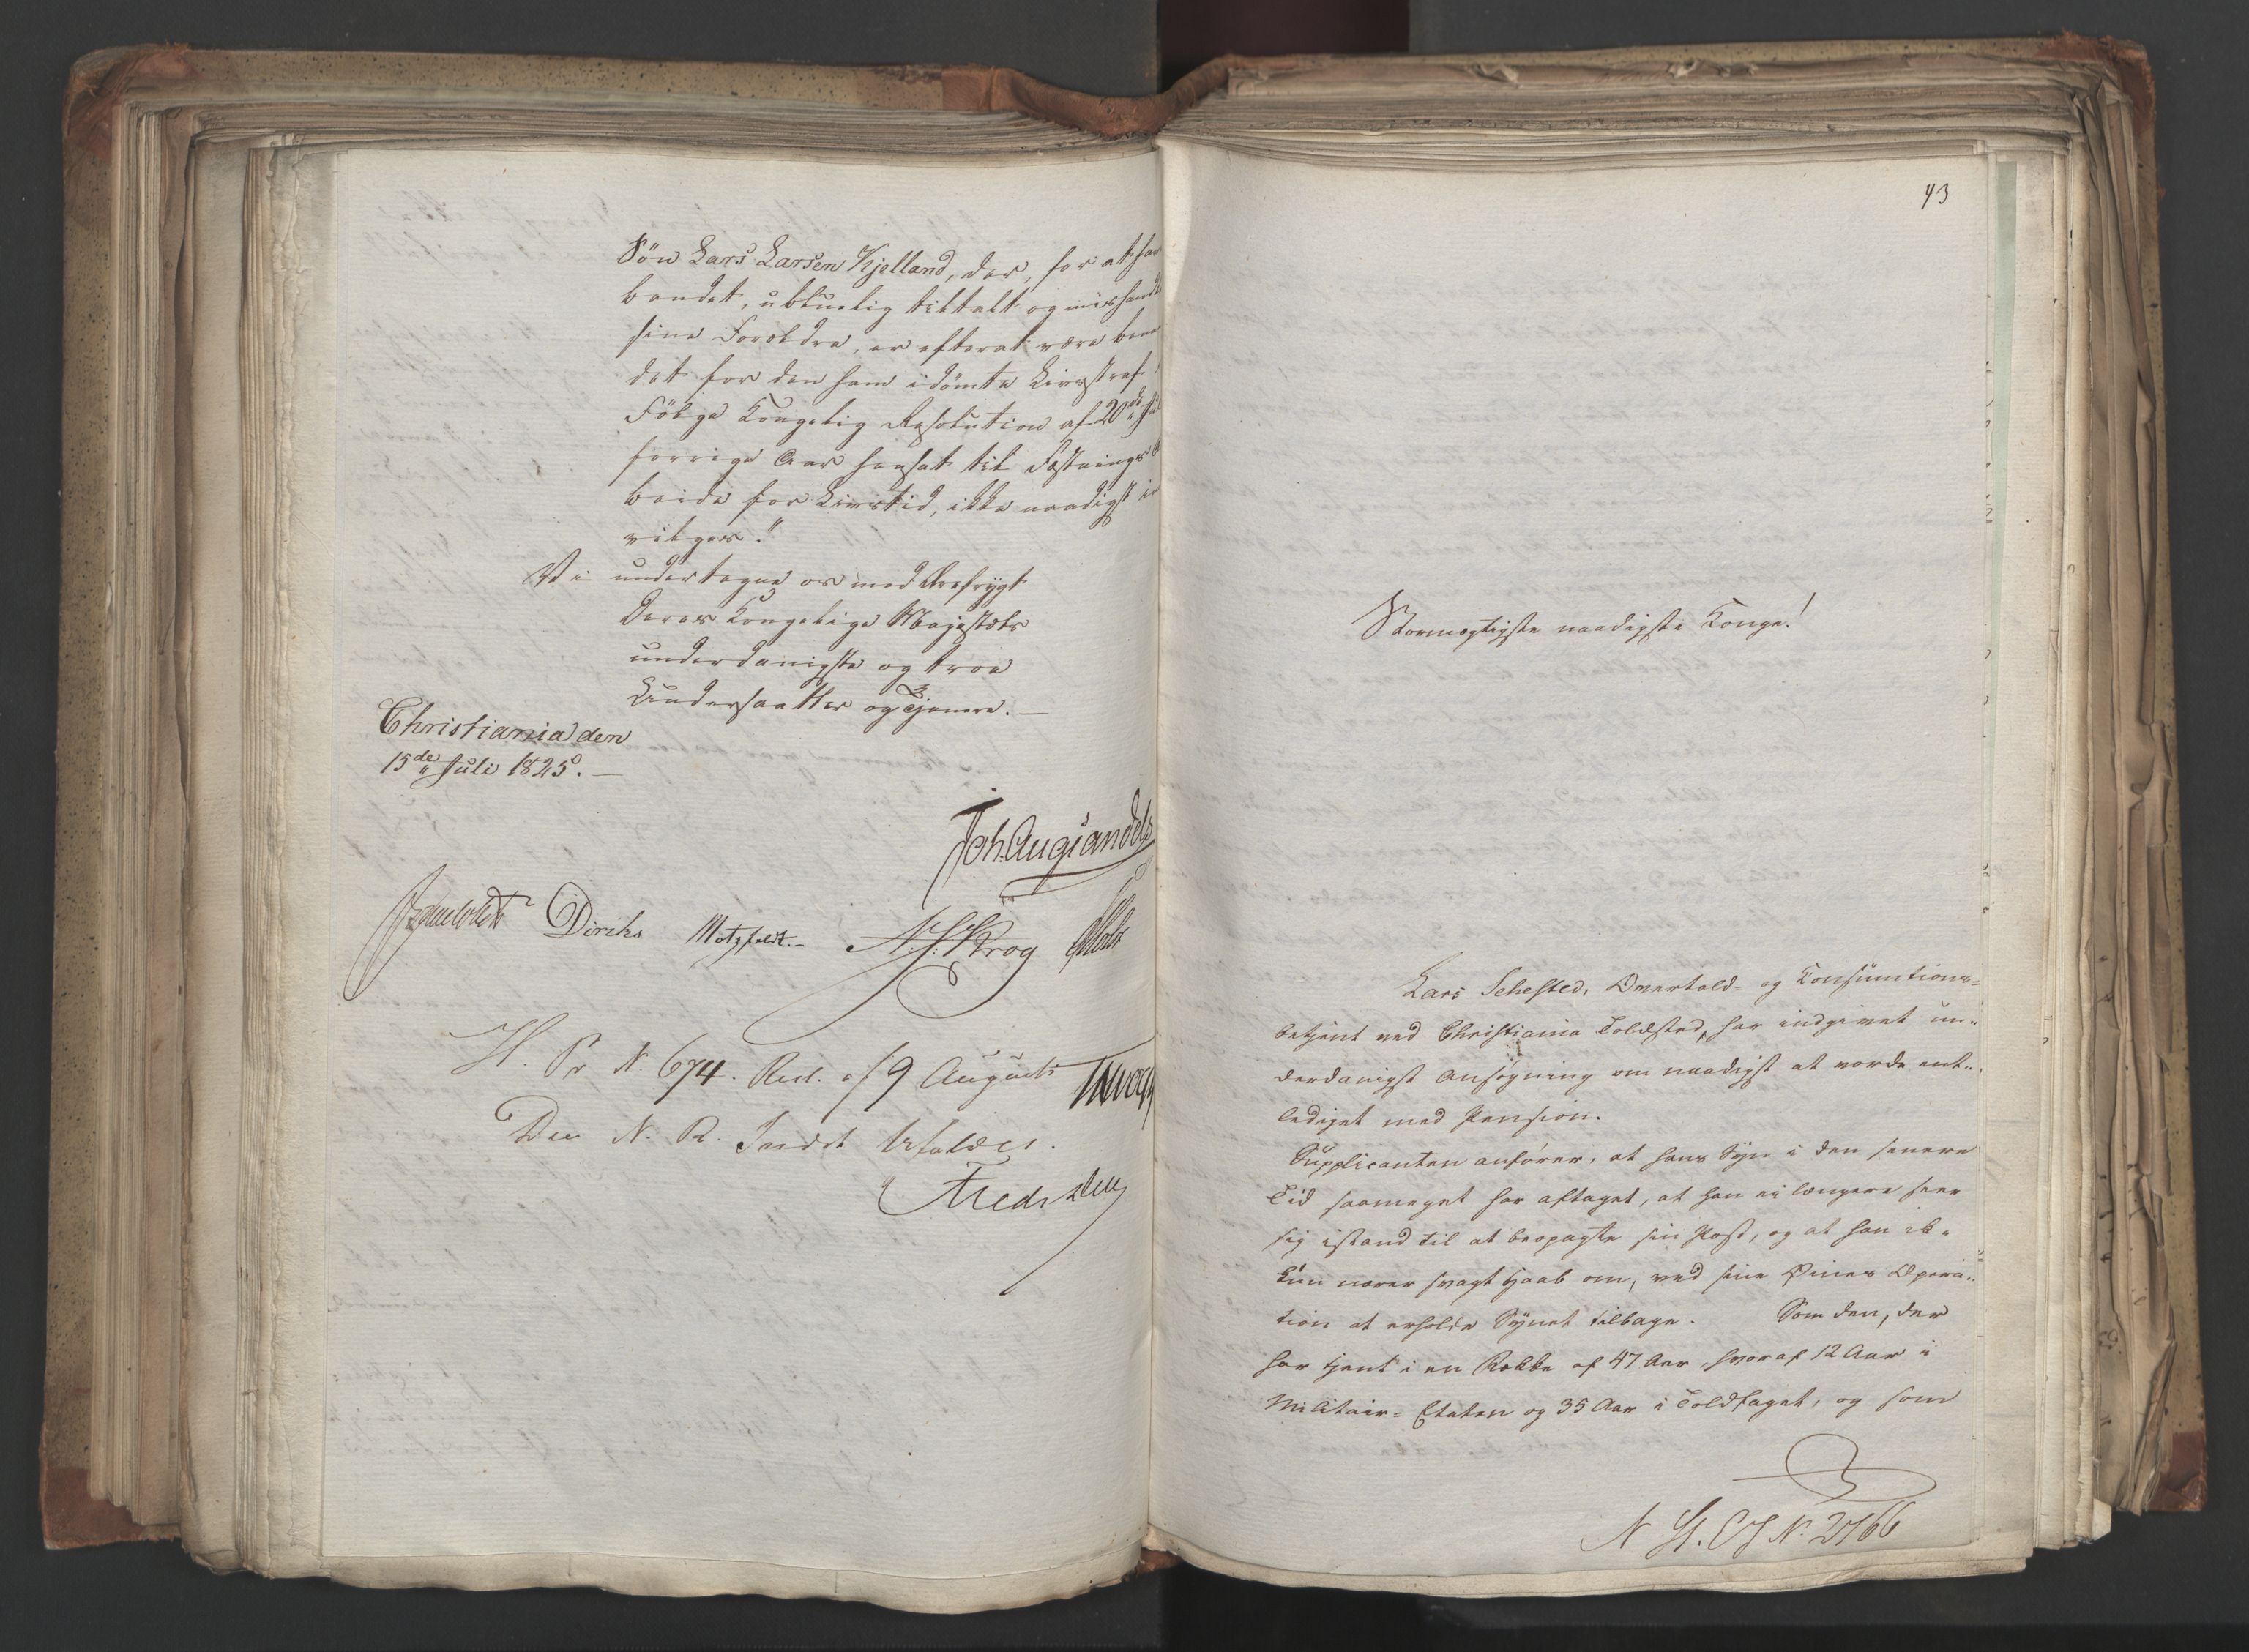 Sön Lars Larsen Kjelland, der, for at ha
bandet, ublueelig tiltalt og mishand
sine Forældre, er efterat være benaa
det for den ham idømte Livsstraf
Følge Kongelig Resolution af 20de Ju
forrige Aar hensat til Fæstnings A
beide for Livstid, ikke naadigst
vilges."
Vi undertegne os med Ærefrygt
Deres Kongelige Majestæts
underdanigste og troe
Undersaatter og Tjenere. —
Christiania den
15de Juli 1825. —
Joh. Aug. Sandels
Diriks Motzfeldt. — Krog
N. 674. Res. af 9 August
Den N. R. Indst bifaldes.
43
Stormægtigste naadigste Konge!
Lars Sehested, Overtold- og Konsumtions-
betjent ved Christiania Toldsted, har indgivet un-
derdanigst Ansøgning om naadigst at vorde ent-
lediget med Pension.
Supplicanten anfører, at hans Syn i den senere
Tid saameget har aftaget, at han ei længere seer
sig istand til at beopagte sin Post, og at han ik-
kun nærer svagt Haab om, ved sine Øines Opera-
tion at erholde Synet tilbage. Som den, der
har tjent i en Række af 47 Aar, hvoraf 12 Aar i
Militair-Etaten og 35 Aar i Toldfaget, og som